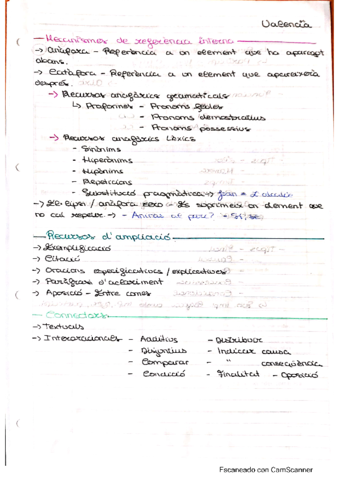 Valencià
Mecanismes de referència interna
-> Anàfora - Referència a un element que ha aparegut
abans.
-> Catàfora - Referència a un element que apareixerà
després.
-> Recursos anafòrics gramaticals
Proformes - Pronoms febles
- Pronoms demostratius
- Pronoms possessius
-> Recursos anafòrics Lèxics
- Sinònims
- Hiperònims
- Hipònims
- Repeticions
- Substitució pragmàtica ->
-> El·lipsi / anàfora zero - Es suprimeix un element que
no cal repetir -> - Aniràs al
Recursos d'ampliació
-> Exemplificació
-> Citació
-> Oracions especificatives / explicatives
-> Paràgrafs d'aclariment
-> Aposició - Entre comes
Connectors
-> Textuals
-> Interoracionals - Additius - Distribuir
- Disjuntius - Indicar causa
- Comparar - " conseqüència
- Condició - Finalitat - Oposició
Escaneado con CamScanner